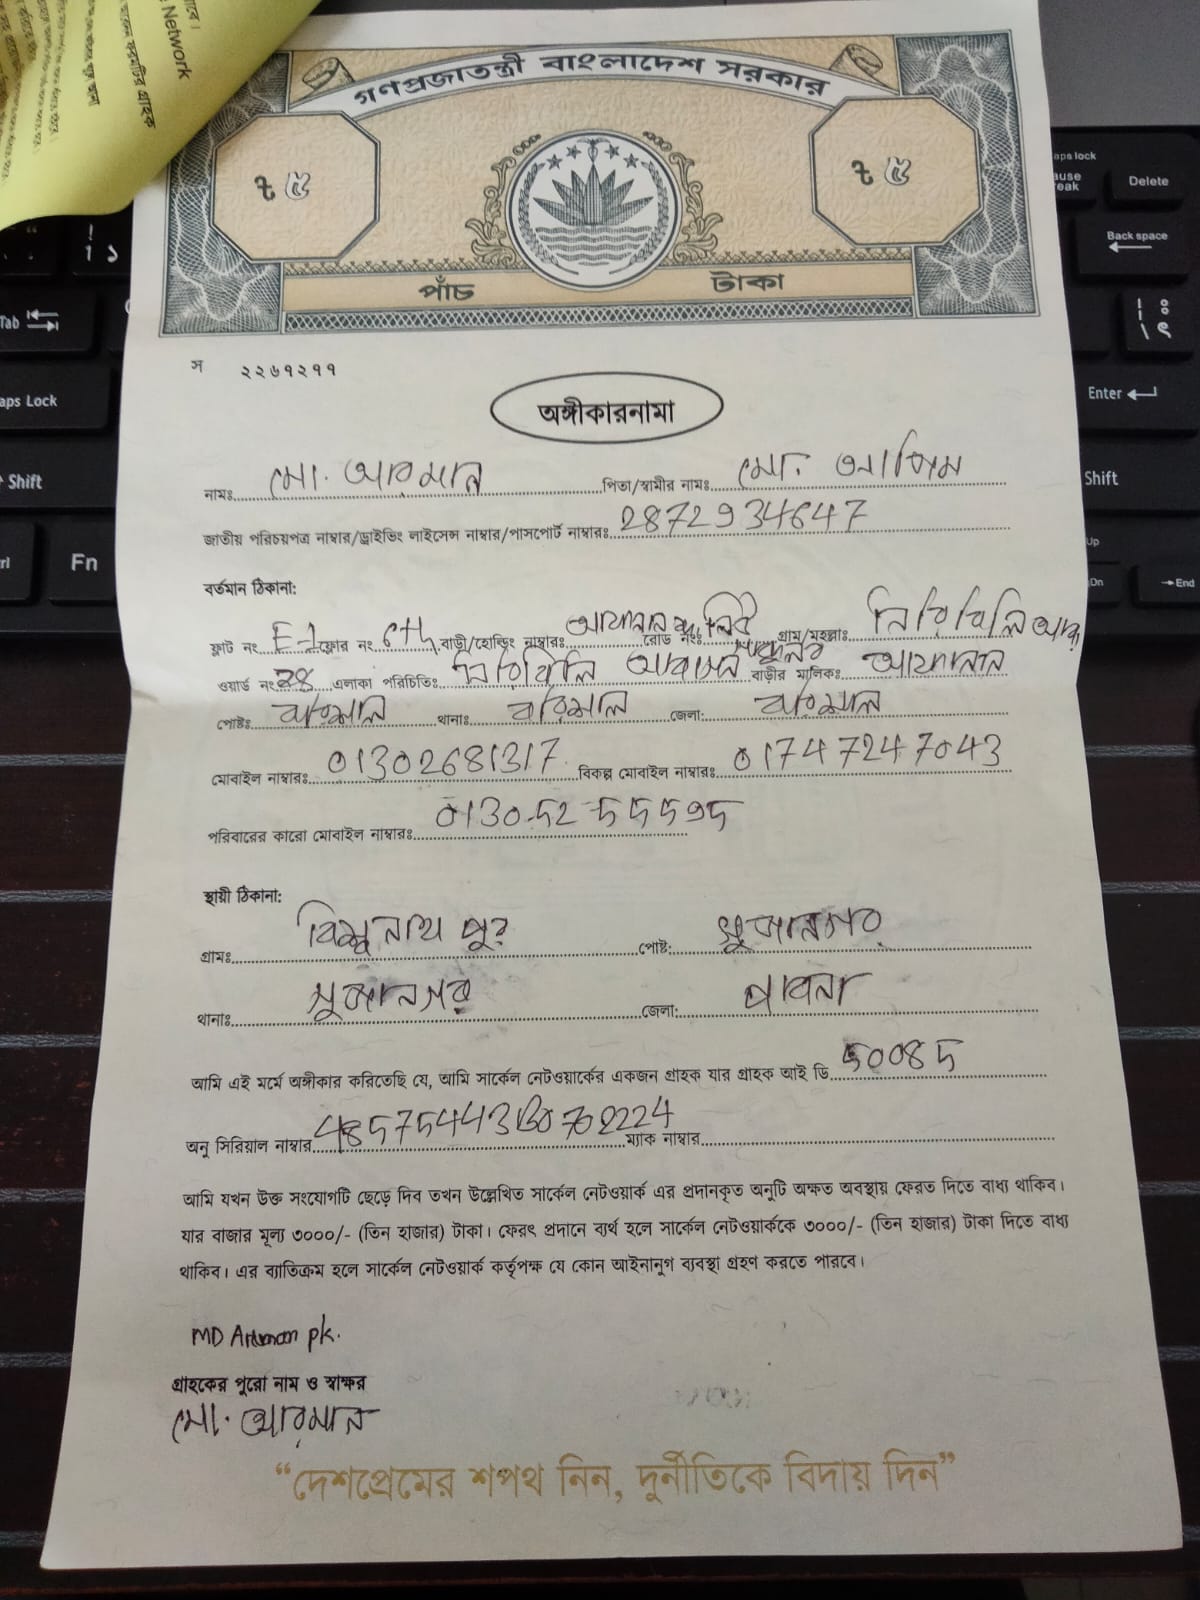 Network
গণপ্রজাতন্ত্রী বাংলাদেশ সরকার
৳ ৫ ৳ ৫
পাঁচ টাকা
স ২২৬৭২৭৭
অঙ্গীকারনামা
নামঃ মো. আরমান পিতা/স্বামীর নামঃ মো.
জাতীয় পরিচয়পত্র নাম্বার/ড্রাইভিং লাইসেন্স নাম্বার/পাসপোর্ট নাম্বারঃ 2872934647
বর্তমান ঠিকানা:
ফ্লাট নং E-1 ফ্লোর নং 6th বাড়ী/হোল্ডিং নাম্বারঃ রোড নংঃ গ্রাম/মহল্লাঃ নিরিবিলি
ওয়ার্ড নং এলাকা পরিচিতিঃ নিরিবিলি আবাসন বাড়ীর মালিকঃ
পোষ্টঃ বরিশাল থানাঃ বরিশাল জেলা: বরিশাল
মোবাইল নাম্বারঃ 01302681317 বিকল্প মোবাইল নাম্বারঃ 01747247043
পরিবারের কারো মোবাইল নাম্বারঃ
স্থায়ী ঠিকানা:
গ্রামঃ বিশ্বনাথ পুর পোষ্ট: সুজানগর
থানাঃ সুজানগর জেলা: পাবনা
আমি এই মর্মে অঙ্গীকার করিতেছি যে, আমি সার্কেল নেটওয়ার্কের একজন গ্রাহক যার গ্রাহক আই ডি 50085
অনু সিরিয়াল নাম্বার ম্যাক নাম্বার
আমি যখন উক্ত সংযোগটি ছেড়ে দিব তখন উল্লেখিত সার্কেল নেটওয়ার্ক এর প্রদানকৃত অনুটি অক্ষত অবস্থায় ফেরত দিতে বাধ্য থাকিব।
যার বাজার মূল্য ৩০০০/- (তিন হাজার) টাকা। ফেরৎ প্রদানে ব্যর্থ হলে সার্কেল নেটওয়ার্ককে ৩০০০/- (তিন হাজার) টাকা দিতে বাধ্য
থাকিব। এর ব্যাতিক্রম হলে সার্কেল নেটওয়ার্ক কর্তৃপক্ষ যে কোন আইনানুগ ব্যবস্থা গ্রহণ করতে পারবে।
MD Arman pk.
গ্রাহকের পুরো নাম ও স্বাক্ষর
মো. আরমান
“দেশপ্রেমের শপথ নিন, দুর্নীতিকে বিদায় দিন”
Tab
Caps Lock
Shift
Fn
Caps lock
Pause
Break
Delete
Back space
Enter
Shift
Up
Dn
End